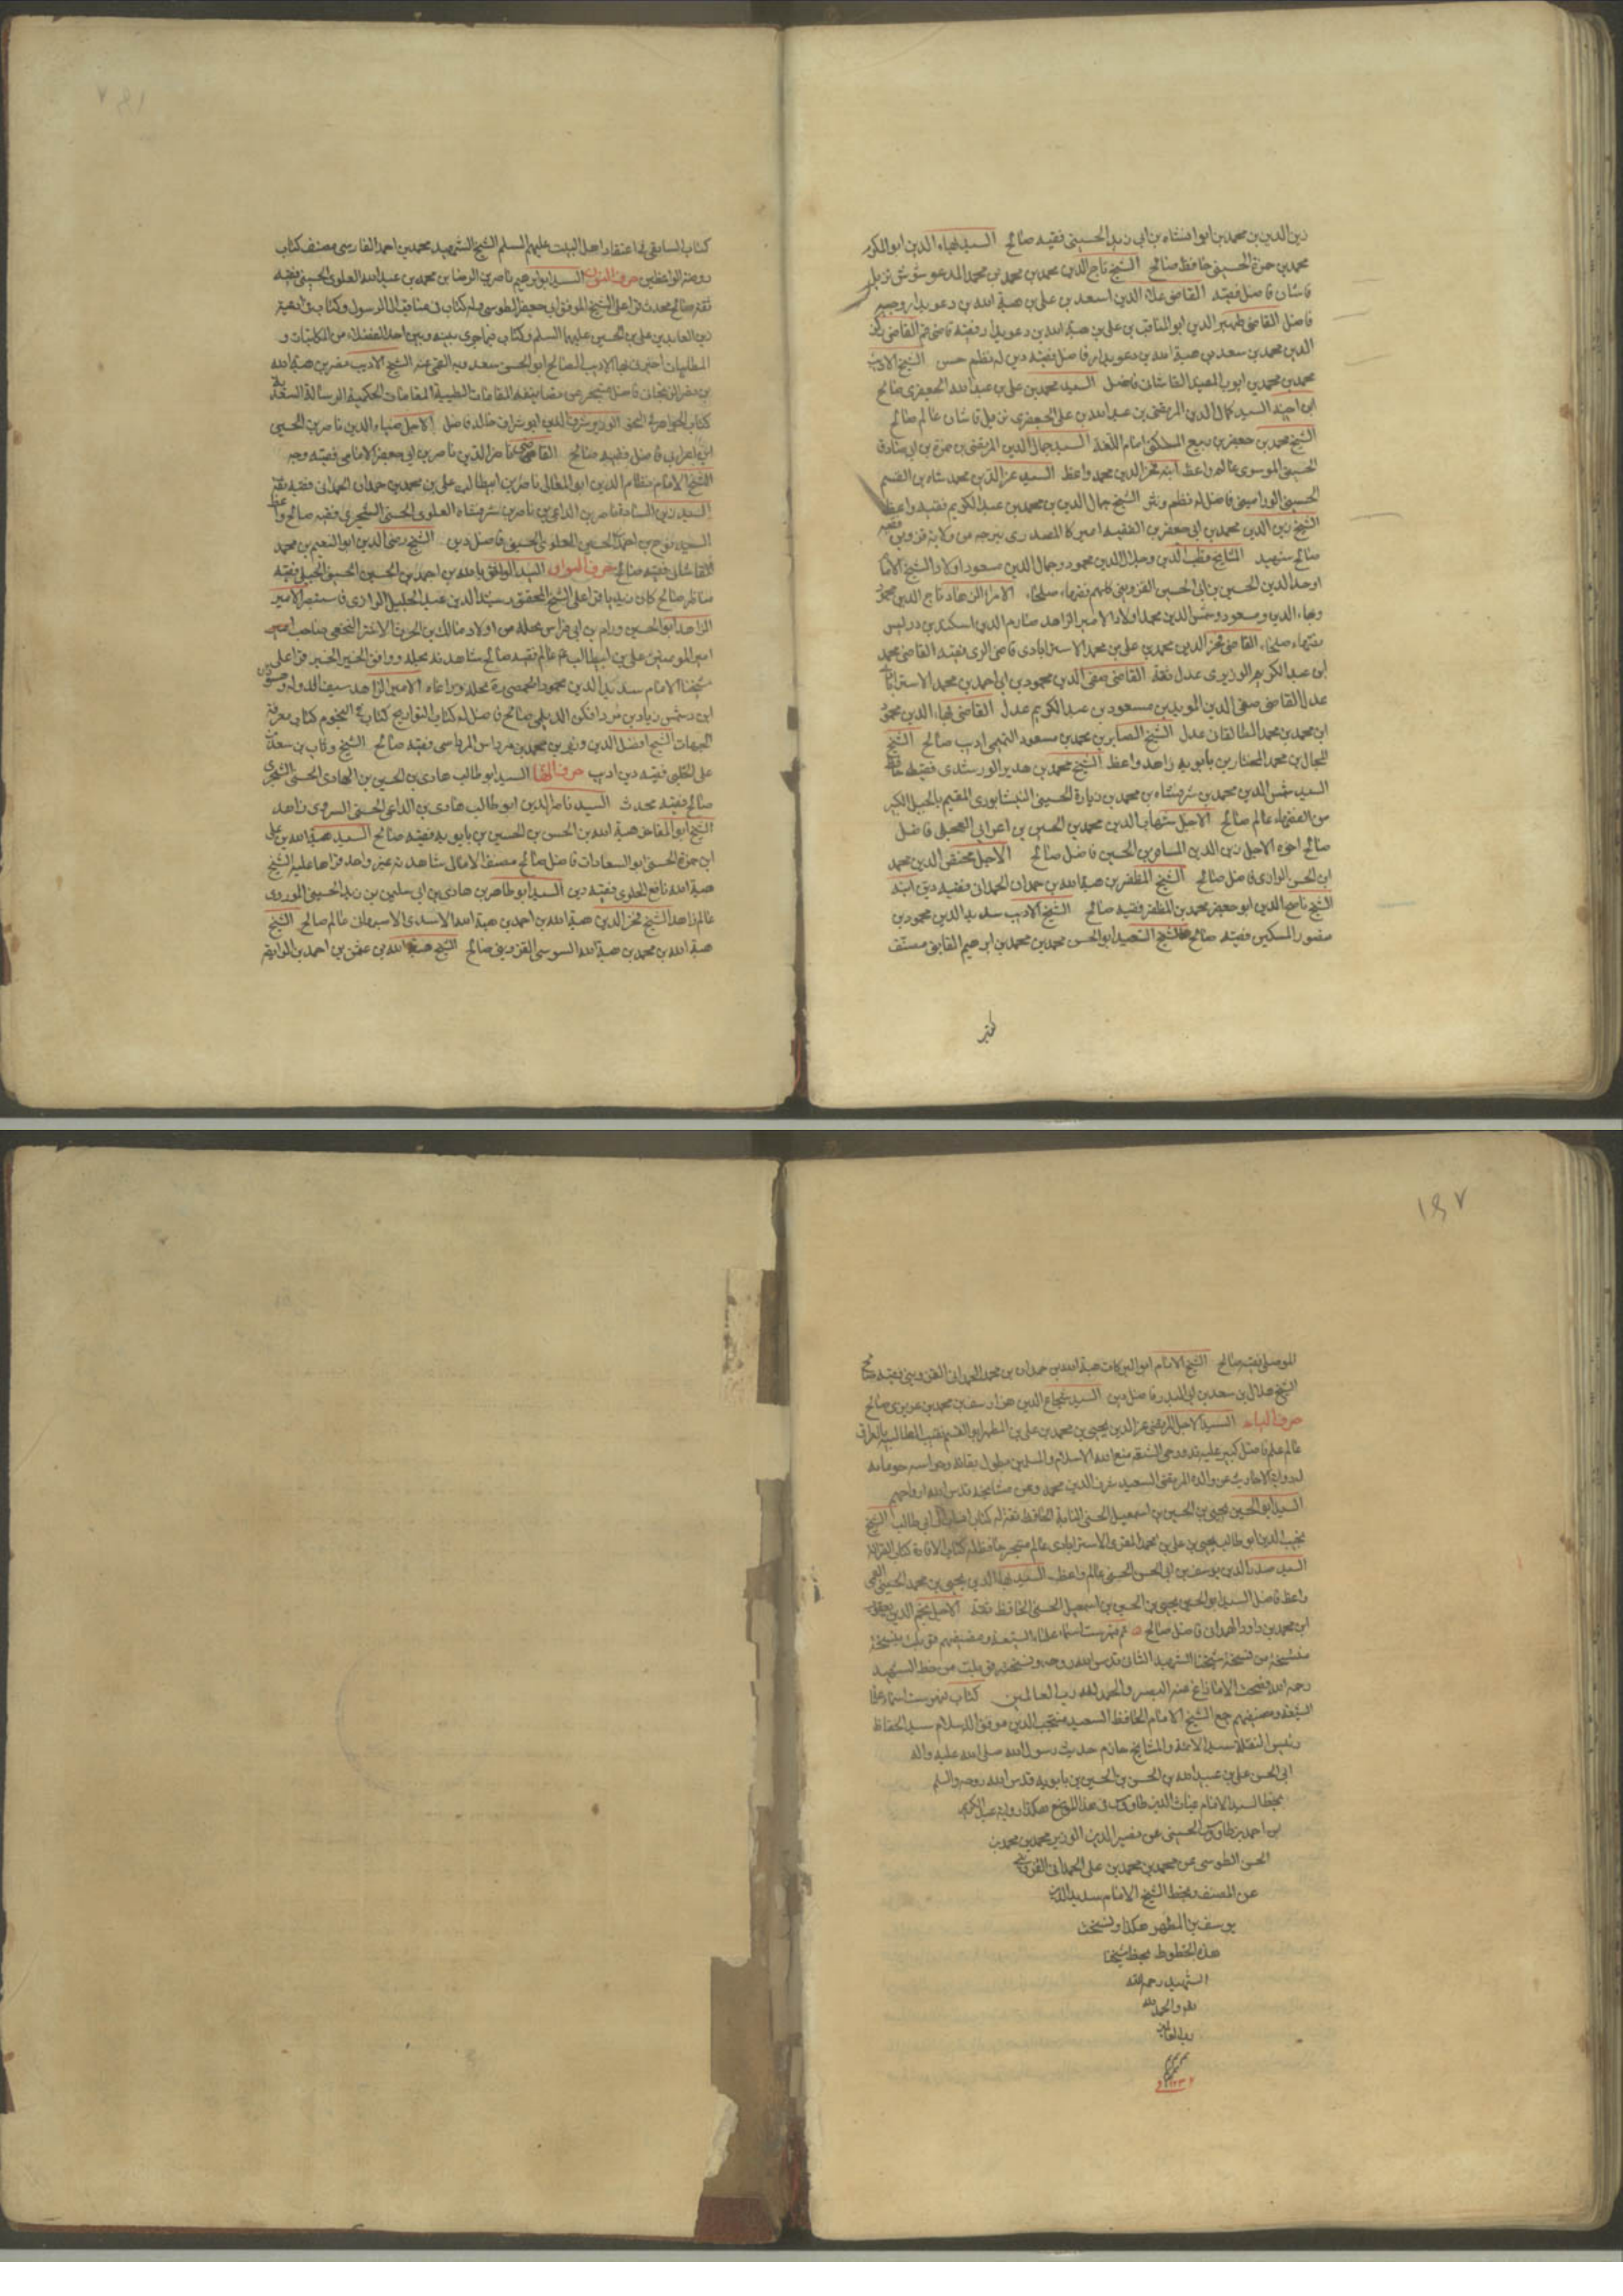 زين الدين بن محمد بن ابو انشاه بن ابي زيد الحسيني فقيه صالح السيد بهاء الدين ابو الكرم
محمد بن حمزة الحسيني حافظ صالح الشيخ تاج الدين محمد بن محمد بن محمد المدعو شوش نزيل
قاشان فاضل فقيه القاضي علاء الدين اسعد بن علي بن هبة الله بن دعويدار وجيه
فاضل القاضي ظهير الدين ابو المناقب بن علي بن هبة الله بن دعويدار فقيه قاضي قم القاضي ركن
الدين محمد بن سعد بن هبة الله بن دعويدار فاضل فقيه دين له نظم حسن الشيخ الاديب
محمد بن محمد بن ايوب المفيد القاشاني فاضل السيد محمد بن علي بن عبد الله الجعفري صالح
ابن اخيه السيد كمال الدين المرتضى بن عبد الله بن علي الجعفري نزيل قاشان عالم صالح
الشيخ محمد بن جعفر بن ربيع المسكني امام اللغة السيد جمال الدين المرتضى بن حمزة بن ابي صادق
الحسيني الموسوي عالم واعظ ابنه فخر الدين محمد واعظ السيد عز الدين محمد شاه بن القسم
الحسيني الوراميني فاضل له نظم ونثر الشيخ جمال الدين بن محمد بن عبد الكريم فقيه واعظ
الشيخ زين الدين محمد بن ابي جعفر بن الفقيه اميركا المصدري بنرجه من ولاية قزوين فقيه
صالح شهيد المشايخ قطب الدين وجلال الدين محمود وجمال الدين مسعود اولاد الشيخ الامام
اوحد الدين الحسين بن ابي الحسين القزويني كلهم فقهاء صلحاء الامراء الزهاد تاج الدين محمود
وبهاء الدين ومسعود وشمس الدين محمد اولاد الامير الزاهد صارم الدين اسكندر بن دربيس
فقهاء صلحاء القاضي فخر الدين محمد بن علي بن محمد الاسترابادي قاضي الري فقيه القاضي محمد
ابن عبد الكريم الوزيري عدل ثقة القاضي صفي الدين محمود بن ابي احمد بن محمد الاسترابادي
عدل القاضي صفي الدين المويد بن مسعود بن عبد الكريم عدل القاضي بهاء الدين محمود
ابن محمد بن محمد الطالقاني عدل الشيخ الصابر بن محمد بن مسعود التميمي اديب صالح الشيخ
المجال بن محمد المختار بن بابويه زاهد واعظ الشيخ محمد بن هدير الورشندي فقيه حافظ
السيد شمس الدين محمد بن شرفشاه بن محمد بن زيارة الحسيني النيسابوري المقيم بالجبل الكبير
من الفقهاء عالم صالح الاجل شهاب الدين محمد بن الحسين بن اعرابي العجلي فاضل
صالح اخوه الاجل زين الدين المسافر بن الحسين فاضل صالح الاجل مخلص الدين محمد
ابن الحسن الوادي فاضل صالح الشيخ المظفر بن هبة الله بن حمدان الحمداني فقيه دين ابنه
الشيخ ناصح الدين ابو جعفر محمد بن المظفر فقيه صالح الشيخ الاديب سديد الدين محمود بن
منصور المسكين فقيه صالح الشيخ الشهيد ابو الحسن محمد بن محمد بن ابراهيم القايني مصنف
كتاب السابقي فيما اعتقاد اهل البيت عليهم السلم الشيخ الشهيد محمد بن احمد الفارسي مصنف كتاب
روضة الواعظين حرف النون السيد ابو ابرهيم ناصر بن الرضا بن محمد بن عبد الله العلوي الحسيني فقيه
ثقة صالح محدث قرا على الشيخ الموفق ابي جعفر الطوسي وله كتاب في مناقب ال الرسول وكتاب في ادعية
زين العابدين علي بن الحسين عليهما السلم وكتاب فيما جرى بينه وبين احد الفضلاء من المكاتبات و
المطايبات اخبرني بها الاديب الصالح ابو الحسن سعدويه القمي عنه الشيخ الاديب مضر بن هبة الله
بن نصر الزنجاني فاضل متبحر من مصانيفه المقامات الطيبية المقامات الحكمية الرسالة السعدية
كتاب الجواهر في النحو الوزير شرف الدين ابو شراق خالد فاضل الاجل ضياء الدين ناصر بن الحسين
ابن اعرابي فاضل فقيه صالح القاضي ناصر الدين ناصر بن ابي جعفر الامامي فقيه وجه
الشيخ الامام نظام الدين ابو المعالي ناصر بن ابي طالب علي بن محمد بن حمدان الحمداني فقيه ثقة
السيد زين السادة ناصر بن الداعي بن ناصر بن شرفشاه العلوي الحسني الشجري فقيه صالح واعظ
السيد نوح بن احمد الحسين العلوي الحسيني فاضل دين الشيخ رضي الدين ابو النعيم بن محمد
القاشاني فقيه صالح حرف الواو السيد الواثق بالله بن احمد بن الحسين الحسيني الجبلي فقيه
مناظر صالح كان زيديا قرا على الشيخ المحقق رشيد الدين عبد الجليل الرازي فاستبصر الامير
الزاهد ابو الحسين ورام بن ابي فراس بحلة من اولاد مالك بن الحرث الاشتر النخعي صاحب امير
امير المومنين علي بن ابي طالب عم عالم فقيه صالح شاهدته بحلة ووافق الخبر الخبر قرا على
شيخنا الامام سديد الدين محمود الحمصي رة بحلة وراعاه الامير الزاهد سيف الدولة وحسو
ابن دشمن زيار بن مردافكن الديلمي صالح فاضل له كتاب التواريخ كتاب النجوم كتاب معرفة
الجهات الشيخ افضل الدين وثير بن محمد بن مرداس المرداسي فقيه صالح الشيخ وثاب بن سعد بن
علي الحلبي فقيه دين اديب حرف الهاء السيد ابو طالب هادي بن الحسين بن الهادي الحسني الشجري
صالح فقيه محدث السيد ناصر الدين ابو طالب هادي بن الداعي الحسني السروي زاهد
الشيخ ابو المفاخر هبة الله بن الحسن بن الحسين بن بابويه فقيه صالح السيد هبة الله بن علي
ابن حمزة الحسني ابو السعادات فاضل صالح مصنف الامالي شاهدت غير واحد قراها عليه الشيخ
هبة الله نافع الحلوي فقيه دين السيد ابو طاهر بن هادي بن ابي سليمن بن زيد الحسيني الموردي
عالم زاهد الشيخ فخر الدين هبة الله بن احمد بن هبة الله الاسدي الاسبهاني عالم صالح الشيخ
هبة الله بن محمد بن هبة الله السوسي القزويني صالح الشيخ هبة الله بن عثمن بن احمد بن الرايقة
١٨٧
الموصلي فقيه صالح الشيخ الامام ابو البركات هبة الله بن حمدان بن محمد الحمداني القزويني فقيه صالح
الشيخ هلال بن سعد بن ابي البدر فاضل دين السيد شجاع الدين هزارسف بن محمد بن عزيزي صالح
حرف الياء السيد الاجل المرتضى عز الدين يحيى بن محمد بن علي بن المطهر ابو القسم نقيب الطالبية بالعراق
عالم علم فاضل كبير عليه تدور رحى الشيعة متع الله الاسلام والمسلمين بطول بقائه وحراسة حوبائه
له رواية الاحاديث عن والده المرتضى السعيد شرف الدين محمد وعن مشايخه قدس الله ارواحهم
السيد ابو الحسين يحيى بن الحسين بن اسمعيل الحسني النسابة الحافظ ثقة له كتاب انساب ال ابي طالب الشيخ
نجيب الدين ابو طالب يحيى بن علي بن محمد المقري الاسترابادي عالم متبحر حافظ له كتاب الافادة كتاب القراءة
السيد صدر الدين يوسف بن ابي الحسن الحسيني عالم واعظ السيد بهاء الدين يحيى بن محمد الحسيني القمي
واعظ فاضل السيد ابو الحسين يحيى بن الحسين بن اسمعيل الحسني الحافظ ثقة الاجل نجم الدين يعقوب
ابن محمد بن داود الهمداني فاضل صالح تم فهرست اسماء علماء الشيعة ومصنفيهم قوبلت بنسخة
منتسخة من نسخة شيخنا الشهيد الثاني قدس الله روحه ونسخته قوبلت من خط الشهيد
رحمه الله فصحت الا ما زاغ عنه البصر والحمد لله رب العالمين كتاب فهرست اسماء علماء
الشيعة ومصنفيهم جمع الشيخ الامام الحافظ السعيد منتجب الدين موفق الاسلام سيد الحفاظ
رئيس النقلة سيد الائمة والمشايخ خادم حديث رسول الله صلى الله عليه واله
ابي الحسن علي بن عبيد الله بن الحسن بن الحسين بن بابويه قدس الله روحه والسلم
بخط السيد الامام غياث الدين طاووس في هذا الموضع هكذا رواية عبد الكريم
بن احمد بن طاووس الحسيني عن نصير الدين الوزير محمد بن محمد بن
الحسن الطوسي عن محمد بن محمد بن علي الحمداني القزويني
عن المصنف وبخط الشيخ الامام سديد الدين
يوسف بن المطهر هكذا ونسخت
هذه الخطوط بخط شيخنا
الشهيد رحمه الله
تم والحمد لله
رب العالمين
١٨٧